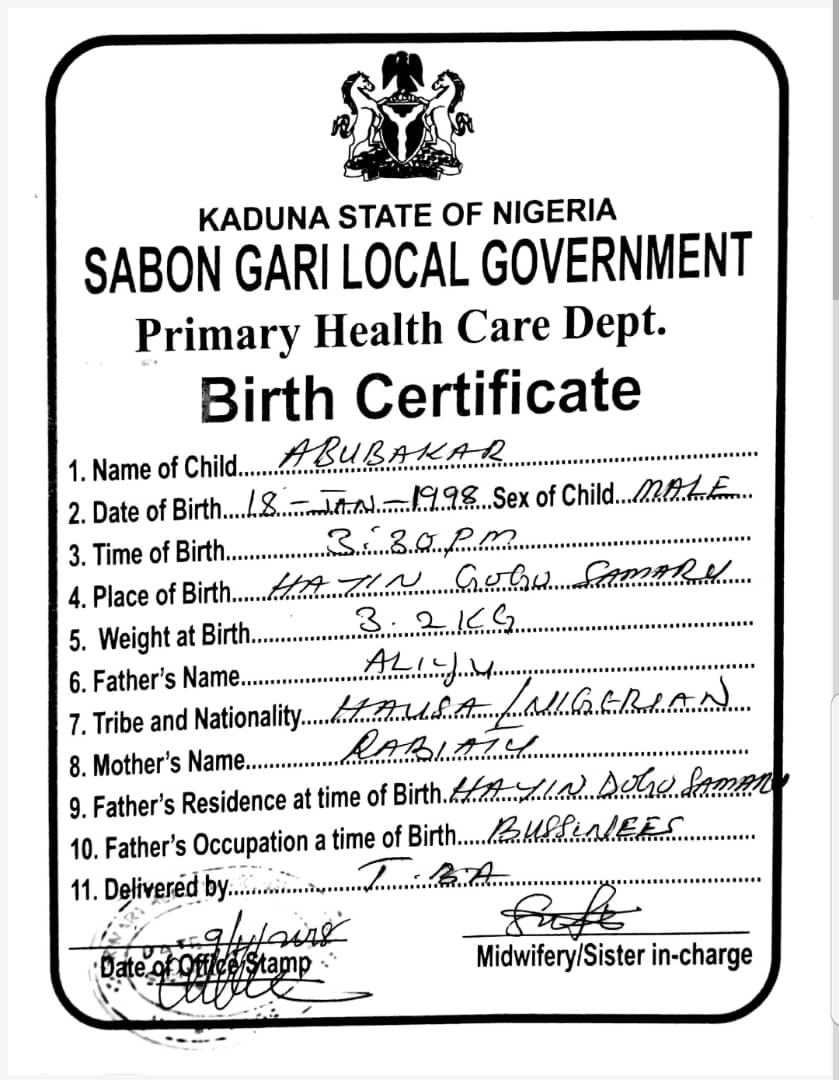 KADUNA STATE OF NIGERIA
SABON GARI LOCAL GOVERNMENT
Primary Health Care Dept.
Birth Certificate
1. Name of Child.....ABUBAKAR
2. Date of Birth....18-JAN-1998..Sex of Child...MALE
3. Time of Birth.............3:30PM
4. Place of Birth.....HAYIN GOGO SAMARU
5. Weight at Birth.............3.2KG
6. Father's Name.............ALIYU
7. Tribe and Nationality....HAUSA/NIGERIAN
8. Mother's Name.............RABIATU
9. Father's Residence at time of Birth.HAYIN DOGO SAMARU
10. Father's Occupation a time of Birth....BUSSINEES
11. Delivered by.............T.BA
9/4/2018
Date of Office/Stamp
Midwifery/Sister in-charge